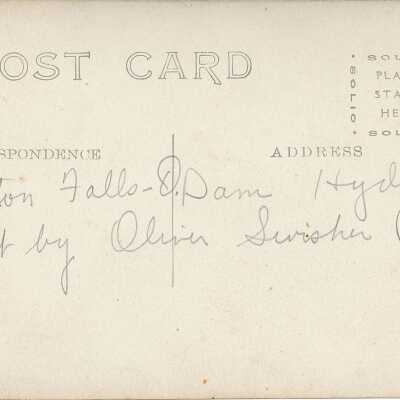 OST CARD
SOL
PLA
STA
HE
SOL
SOLIO
SPONDENCE
ADDRESS
ton Falls-O. Dam Hyd
t by Oliver Swisher (